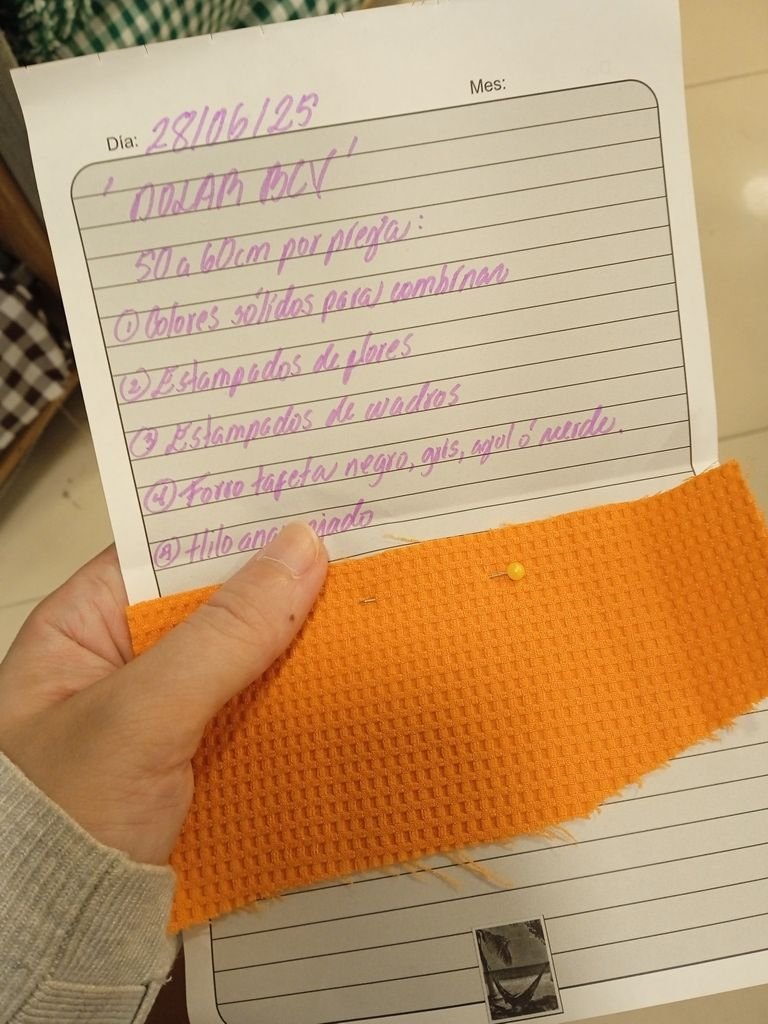 Día: 28/06/25 Mes:
'DOLAR BCV'
50 a 60cm por pieza:
① Colores sólidos para combinar
② Estampados de flores
③ Estampados de cuadros
④ Forro tafeta negro, gris, azul ó verde.
⑤ Hilo anaranjado